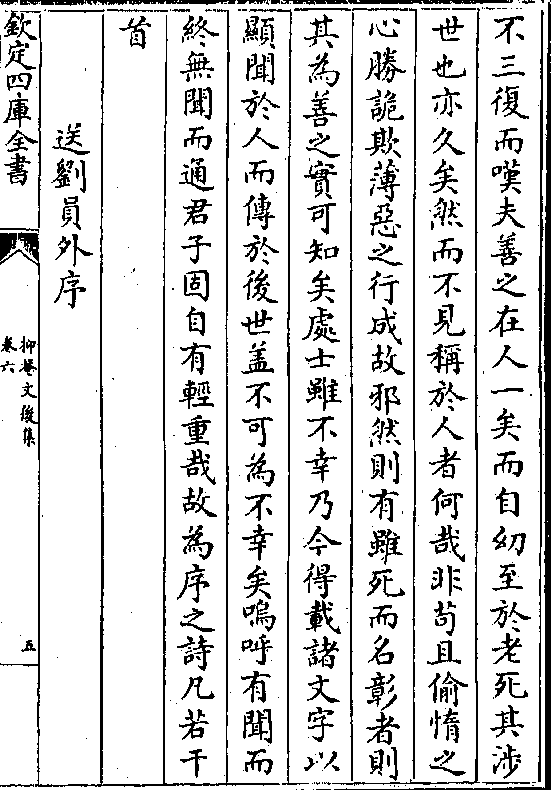 不三復而嘆夫善之在人一矣而自幼至於老死其涉
世也亦久矣然而不見稱於人者何哉非苟且偷惰之
心勝詭欺薄惡之行成故邪然則有雖死而名彰者則
其為善之實可知矣處士雖不幸乃今得載諸文字以
顯聞於人而傳於後世蓋不可為不幸矣嗚呼有聞而
終無聞而通君子固自有輕重哉故為序之詩凡若干
首
送劉員外序
欽定四庫全書
抑菴文後集
卷六
五